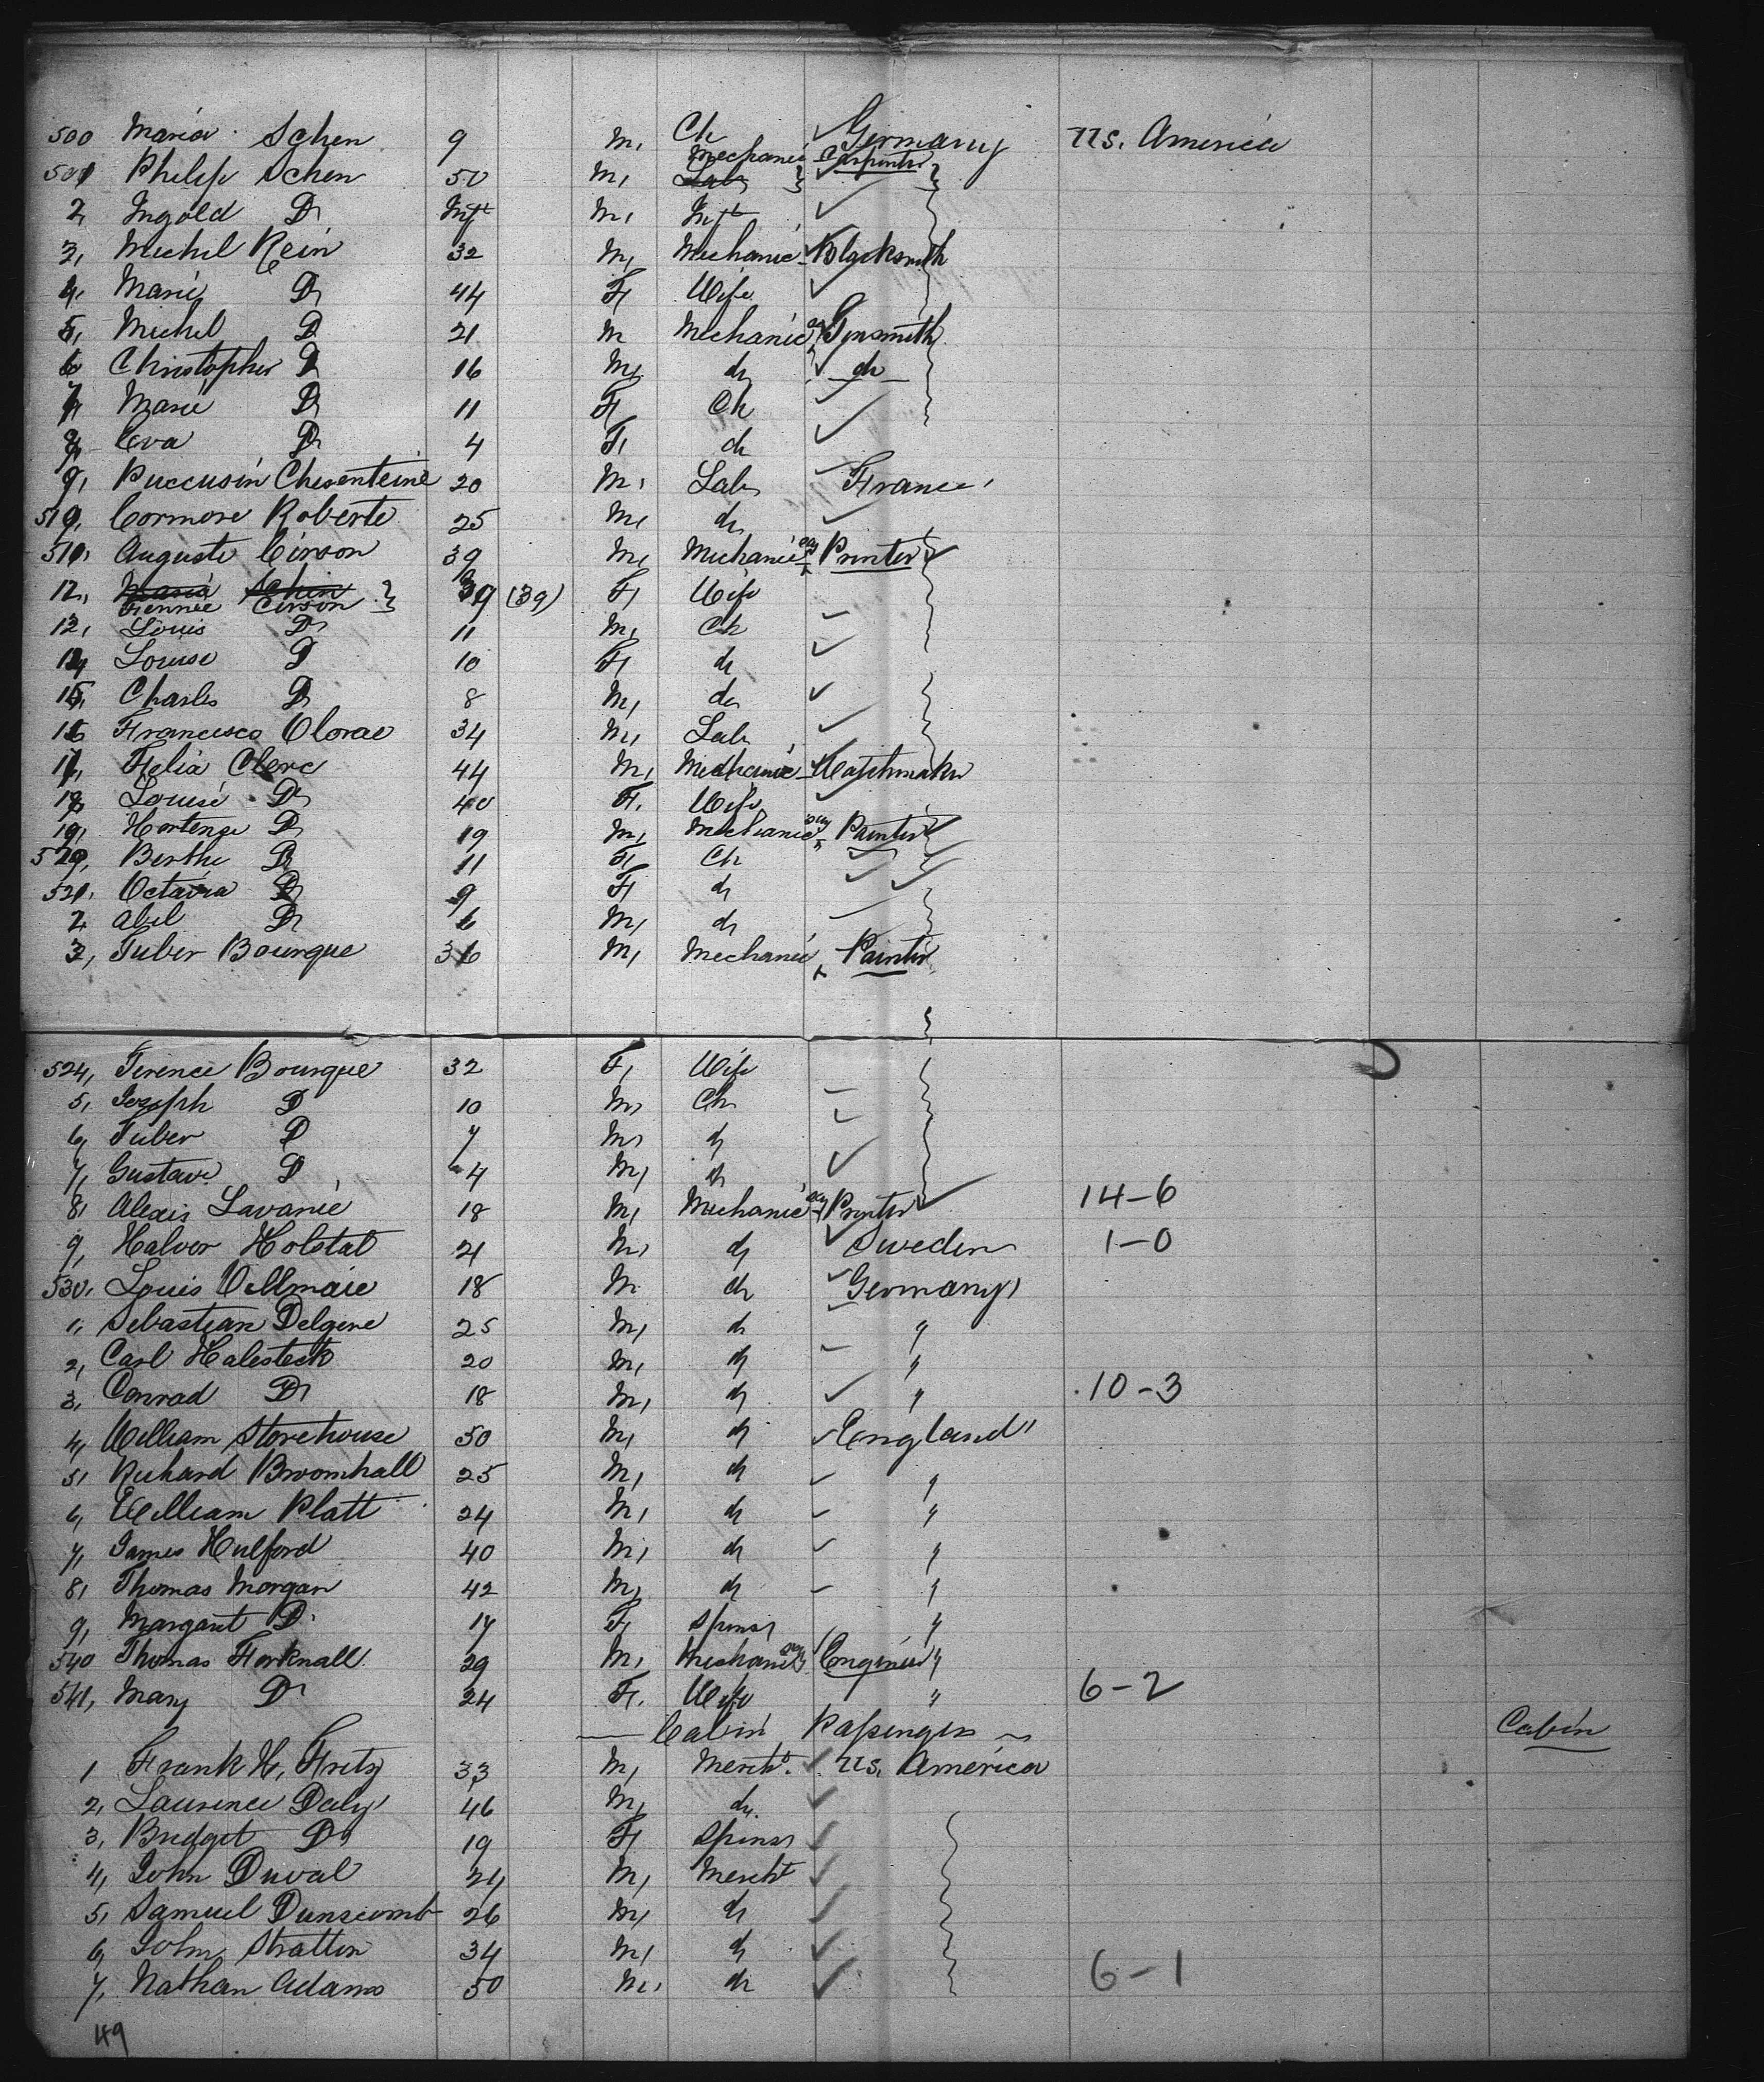 500 Maria Schen 9 M, Ch Germany U.S. America
501 Philip Schen 50 M, Lab Mechanic Carpenter
2, Ingold Do Inft M, Inft
3, Michel Rein 32 M, Mechanic - Blacksmith
4, Marie Do 44 F, Wife
5, Michel Do 21 M Mechanic Gunsmith
6 Christopher Do 16 M, do do
7, Marie Do 11 F, Ch
8, Eva Do 4 F, do
9, Puccusin Chesenteine 20 M, Lab France
510, Cormore Roberte 25 M, do
511, Auguste Cirson 39 M, Mechanic Printer
12, Maria Schin 39 (39) F, Wife
Fiennie Cirson
13, Louis Do 11 M, Ch
14, Louise D 10 F, do
15, Charles Do 8 M, do
16 Francisco Clorae 34 M, Lab
17, Felia Clerc 44 M, Mechanic - Watchmaker
18, Louise Do 40 F, Wife
19, Hortense Do 19 M, Mechanic Painter
520, Berthe Do 11 F, Ch
521, Octavia Do 9 F, do
2, Abel Do 6 M, do
3, Tuber Bourque 36 M, Mechanic Painter
524, Terence Bourque 32 F, Wife
5, Joseph D 10 M, Ch
6, Tuber D 7 M, do
7, Gustave D 4 M, do
8, Alexis Lavanie 18 M, Mechanic Printer 14-6
9, Halvor Holstat 21 M, do Sweden 1-0
530, Louis Villmaie 18 M do Germany
1, Sebastian Delgere 25 M, do "
2, Carl Halesteck 20 M, do "
3, Conrad Do 18 M, do " 10-3
4, William Storehouse 50 M, do England
5, Richard Broomhall 25 M, do "
6, William Platt 24 M, do "
7, James Hulford 40 M, do "
8, Thomas Morgan 42 M, do "
9, Margaret D 17 F, Spinsr "
540 Thomas Forknall 29 M, Mechanic Engineer "
541, Mary Do 24 F, Wife " 6-2
Cabin Passengers Cabin
1 Frank H, Fritz 33 M, Mercht. U.S. America
2, Laurence Daly 46 M, do.
3, Bridget Do 19 F, Spinsr
4, John Duval 24, M, Mercht
5, Samuel Dunscomb 26 M, do
6, John Stratton 34 M, do
7, Nathan Adams 50 M, do 6-1
49